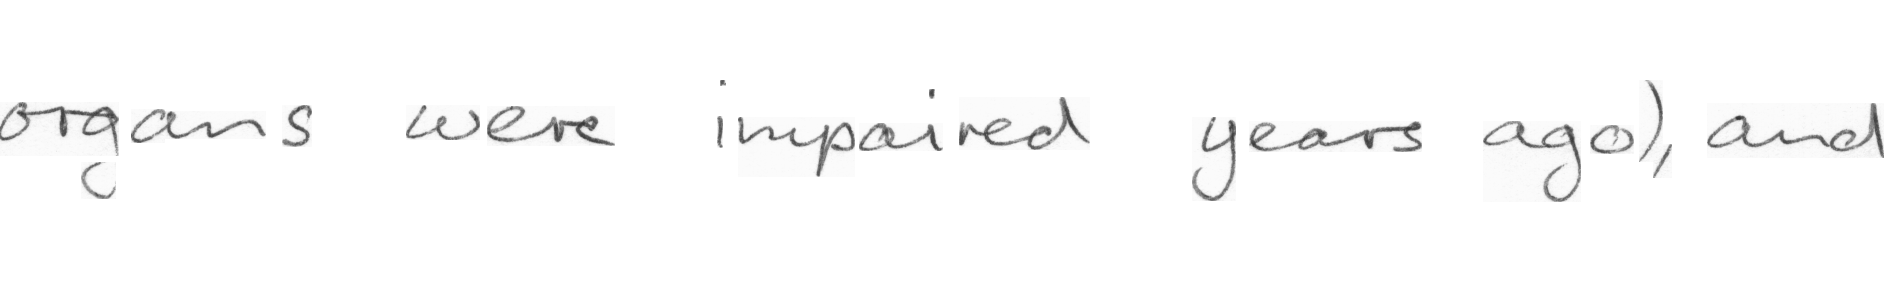 organs were impaired years ago), and